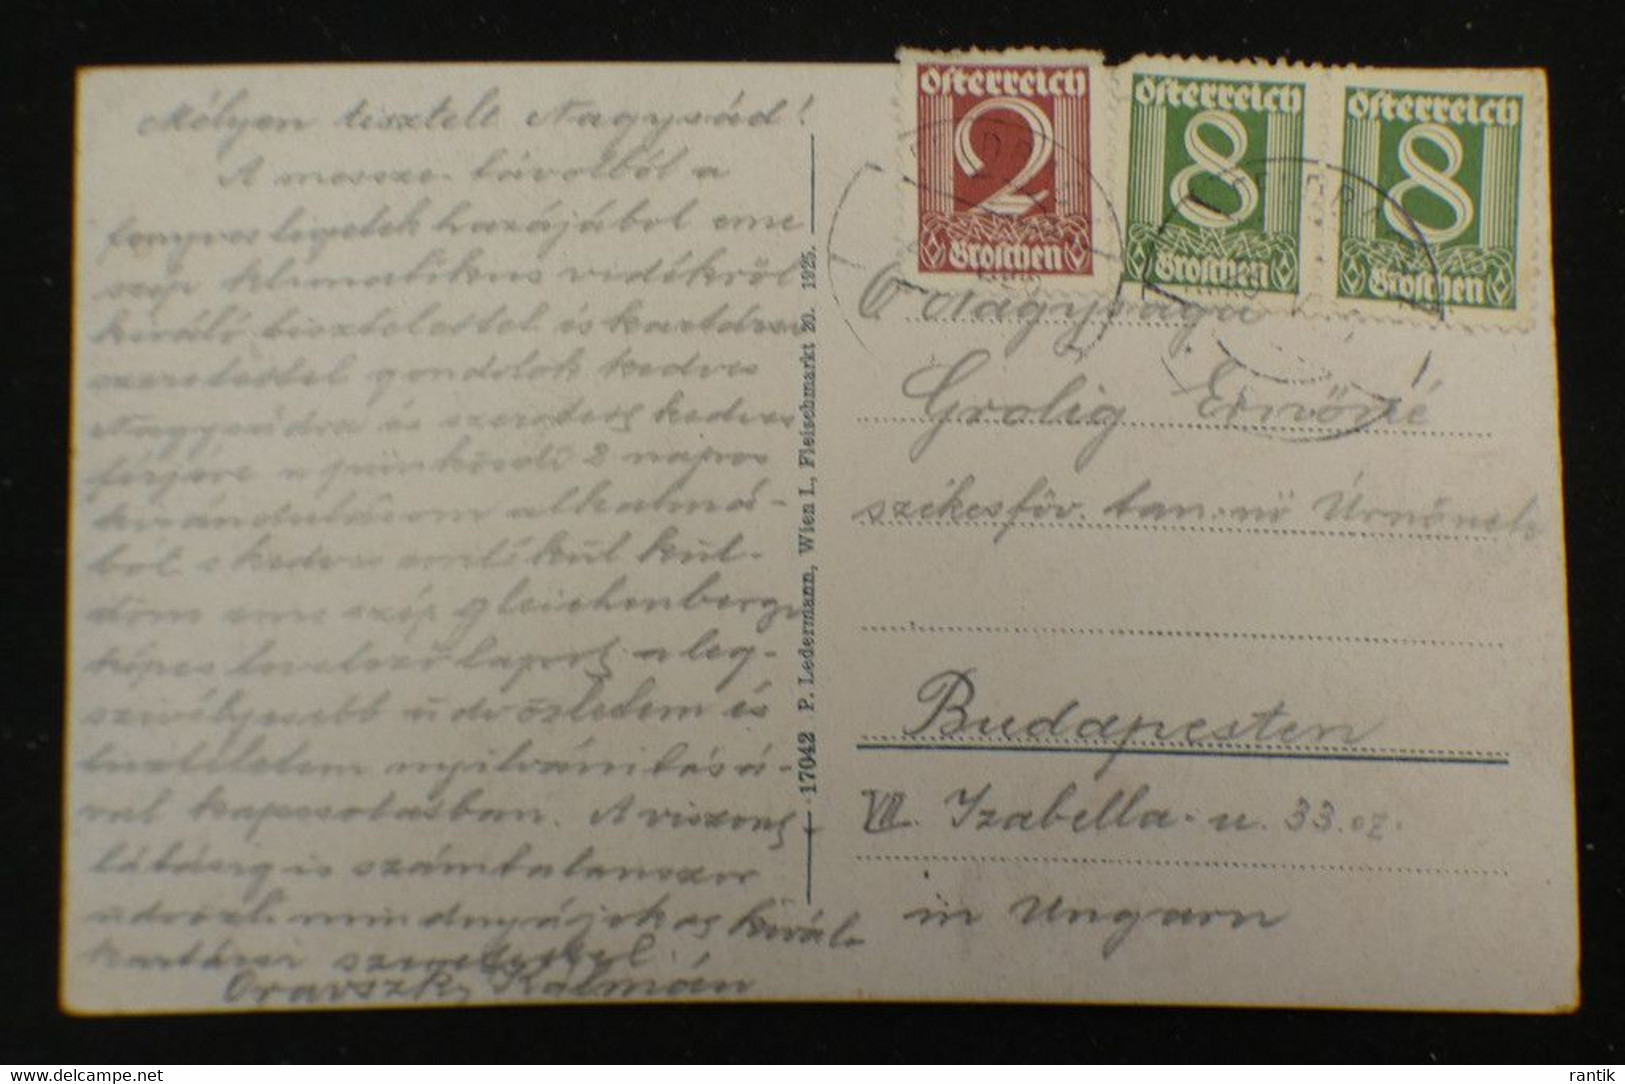 Mélyen tisztelt Nagysád!
A messze távolból a
fenyves ligetek hazájából eme
szép klimatikus vidékről
kiváló tisztelettel és kartársi
szeretettel gondolok kedves
Nagysádra és szeretett kedves
férjére a pünkösdi 2 napos
kirándulásom alkalmá-
ból s kedves emlékül kül-
döm eme szép gleichenbergi
képes levelező lapot a leg-
szivélyesebb üdvözletem és
tiszteletem nyilvánitásá-
val kapcsolatban. A viszont-
látásig is számtalanszor
üdvözli mindnyájokat kiváló
kartársi szeretettel
Oravszky Kálmán
17042 P. Ledermann, Wien I., Fleischmarkt 20. 1925.
Österreich
2
Groschen
Österreich
8
Groschen
Österreich
8
Groschen
Ő Nagysága
Grolig Ernőné
székesföv. tan.nő Úrnőnek
Budapesten
VII. Izabella-u. 33.sz.
in Ungarn
https://www.delcampe.net
rantik